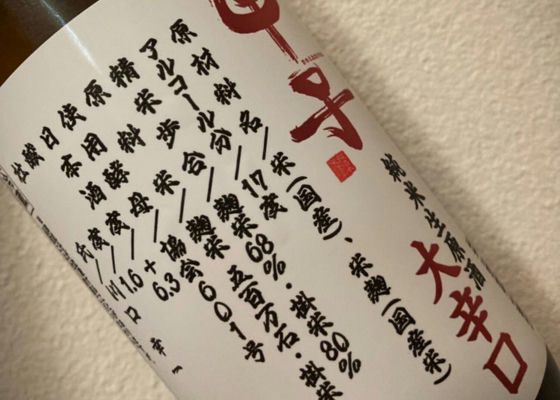 甲子
純米生原酒
大辛口
原材料名/米(国産)、米麹(国産米)
アルコール分/17度
精米歩合/麹米68%・掛米80%
原料米/麹米 五百万石・掛米
使用酵母/協会601号
日本酒度/+6.3
酸度/1.6
杜氏/川口 幸一